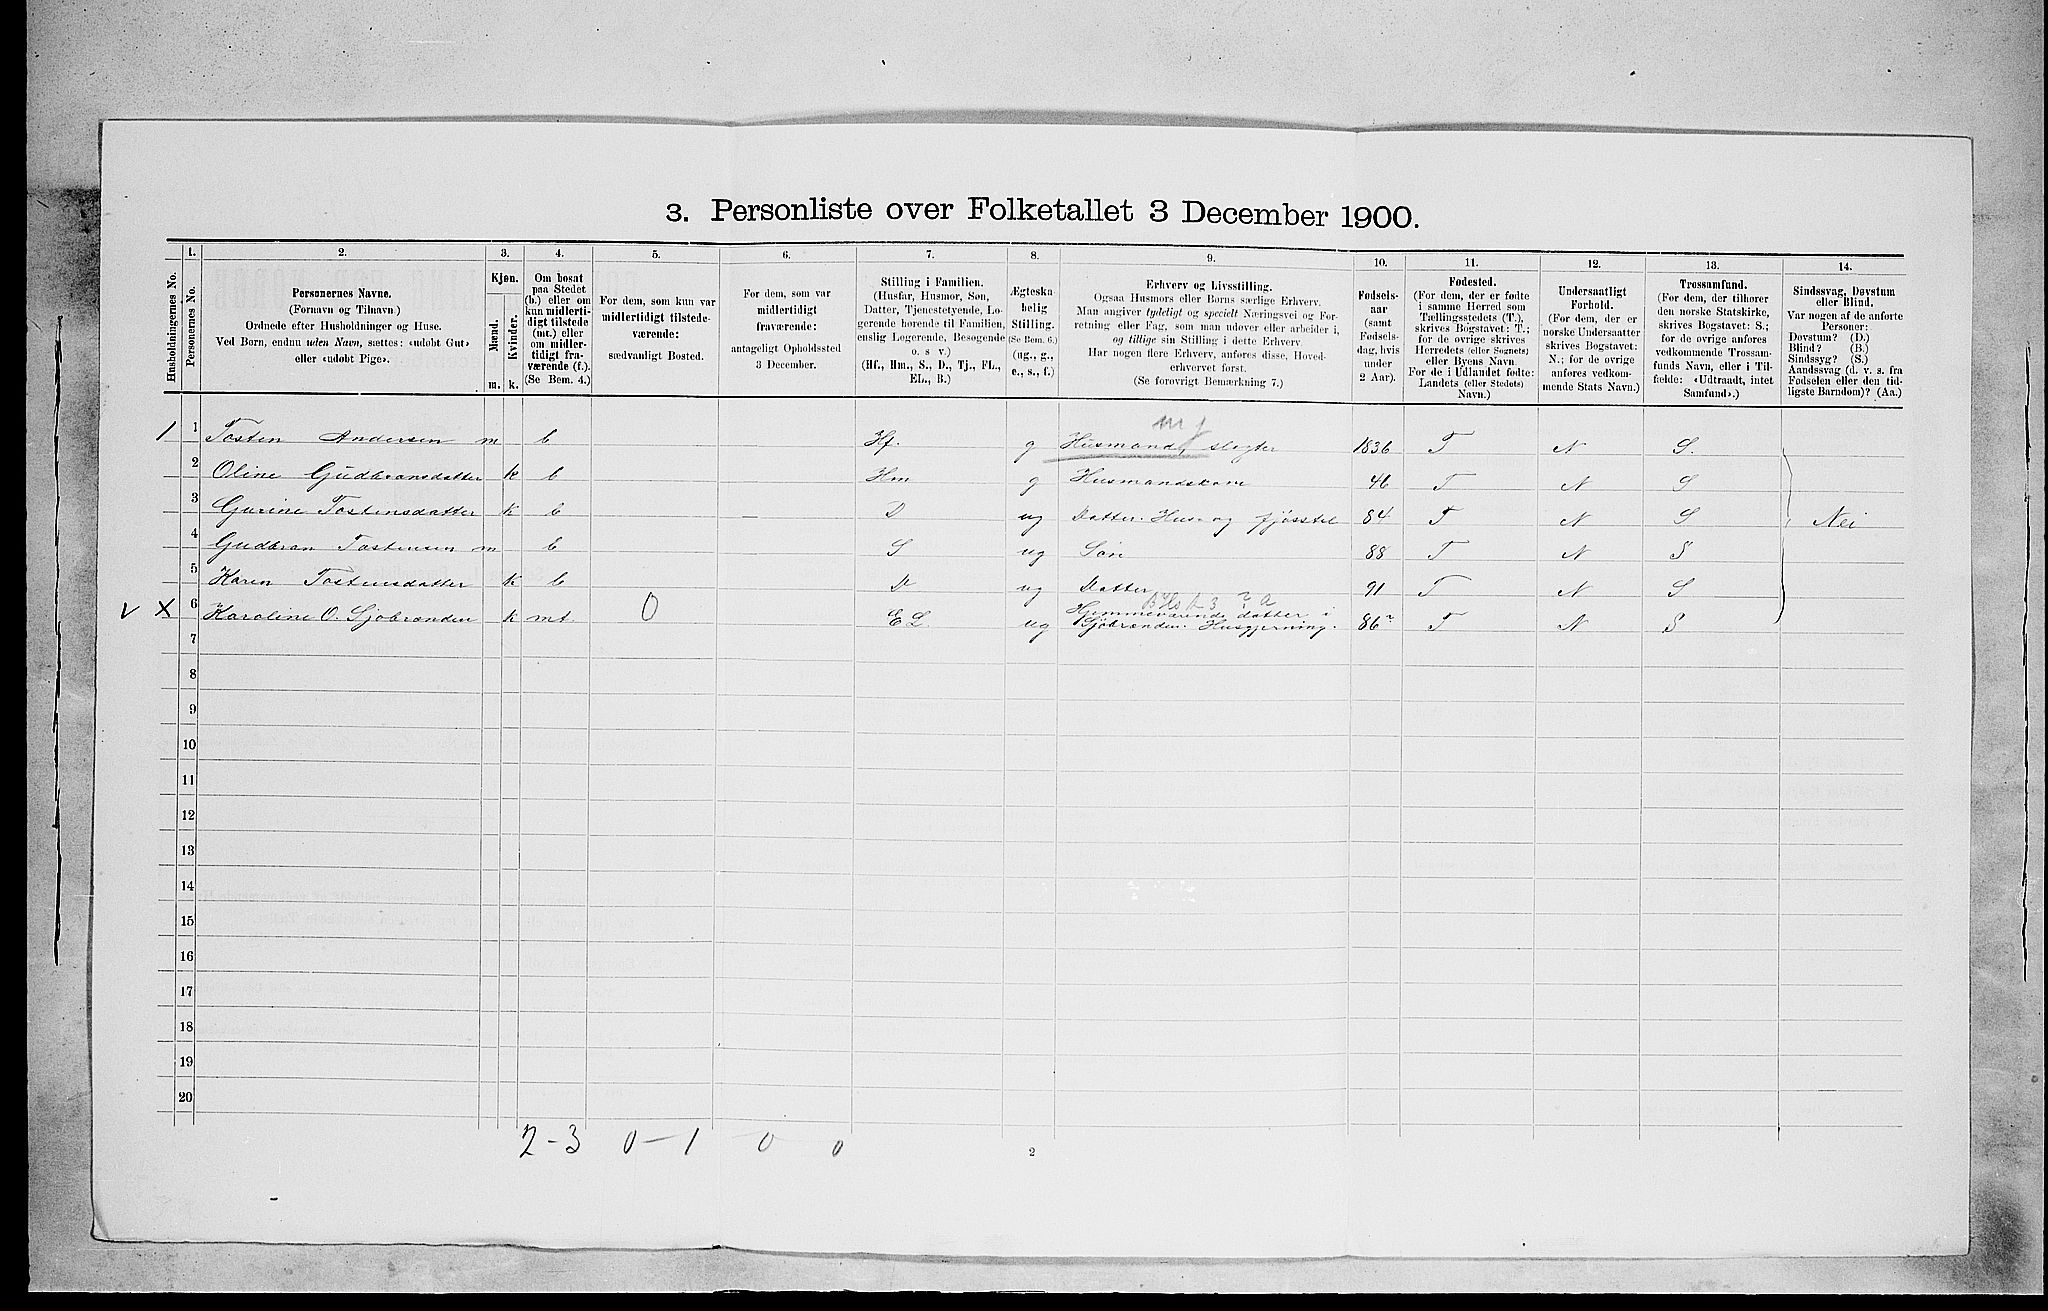 3. Personliste over Folketallet 3 December 1900.
1. 2. 3. 4. 5. 6. 7. 8. 9. 10. 11. 12. 13. 14.
Husholdningernes No.
Personernes No.
Personernes Navne.
(Fornavn og Tilnavn)
Ordnede efter Husholdninger og Huse.
Ved Børn, endnu uden Navn, sættes: «udøbt Gut»
eller «udøbt Pige».
Kjøn.
Mænd.
Kvinder.
m. k.
Om bosat
paa Stedet
(b.) eller om
kun midlerti-
digt tilstede
(mt.) eller
om midler-
tidigt fra-
værende (f.).
(Se Bem. 4.)
For dem, som kun var
midlertidigt tilstede-
værende:
sædvanligt Bosted.
For dem, som var
midlertidigt
fraværende:
antageligt Opholdssted
3 December.
Stilling i Familien.
(Husfar, Husmor, Søn,
Datter, Tjenestetyende, Lo-
gerende hørende til Familien,
enslig Logerende, Besøgende
o. s v.)
(Hf., Hm., S., D., Tj., FL.,
EL., B.)
Ægteska-
belig
Stilling.
(Se Bem. 6.)
(ug., g.,
e., s., f.)
Erhverv og Livsstilling.
Ogsaa Husmors eller Børns særlige Erhverv.
Man angiver tydeligt og specielt Næringsvei og For-
retning eller Fag, som man udøver eller arbeider i,
og tillige sin Stilling i dette Erhverv.
Har nogen flere Erhverv, anføres disse, Hoved-
erhvervet først.
(Se forøvrigt Bemærkning 7.)
Fødsels-
aar
(samt
Fødsels-
dag, hvis
under
2 Aar).
Fødested.
(For dem, der er fødte
i samme Herred som
Tællingsstedets (T.),
skrives Bogstavet: T.;
for de øvrige skrives
Herredets (eller Sognets)
eller Byens Navn
For de i Udlandet fødte:
Landets (eller Stedets)
Navn.)
Undersaatligt
Forhold.
(For dem, der er
norske Undersaatter
skrives Bogstavet:
N.; for de øvrige
anføres vedkom-
mende Stats Navn.)
Trossamfund.
(For dem, der tilhører
den norske Statskirke,
skrives Bogstavet: S.;
for de øvrige anføres
vedkommende Trossam-
funds Navn, eller i Til-
fælde: «Udtraadt, intet
Samfund».)
Sindssvag, Døvstum
eller Blind.
Var nogen af de anførte
Personer:
Døvstum? (D.)
Blind? (B.)
Sindssyg? (S.)
Aandssvag (d. v. s. fra
Fødselen eller den tid-
ligste Barndom)? (Aa.)
mj
1 1 Tosten Andersen m b Hf. g Husmand, slagter 1836 T N S.
2 Oline Gudbransdatter k b Hm g Husmandskone 46 T N S
3 Gurine Tostensdatter k b — D ug Datter. Hus- og fjøsstel 84 T N S Nei
4 Gudbran Tostensen m b S ug Søn 88 T N S
5 Karen Tostensdatter k b D ug Datter 91 T N S
v X 6 Karoline O. Sjøbranden k mt. 0 EL ug Hjemmeværende datter i
Sjøbranden. Husgjerning. 86 T N S
7
8
9
10
11
12
13
14
15
16
17
18
19
20
2-3 0-1 0 0
2